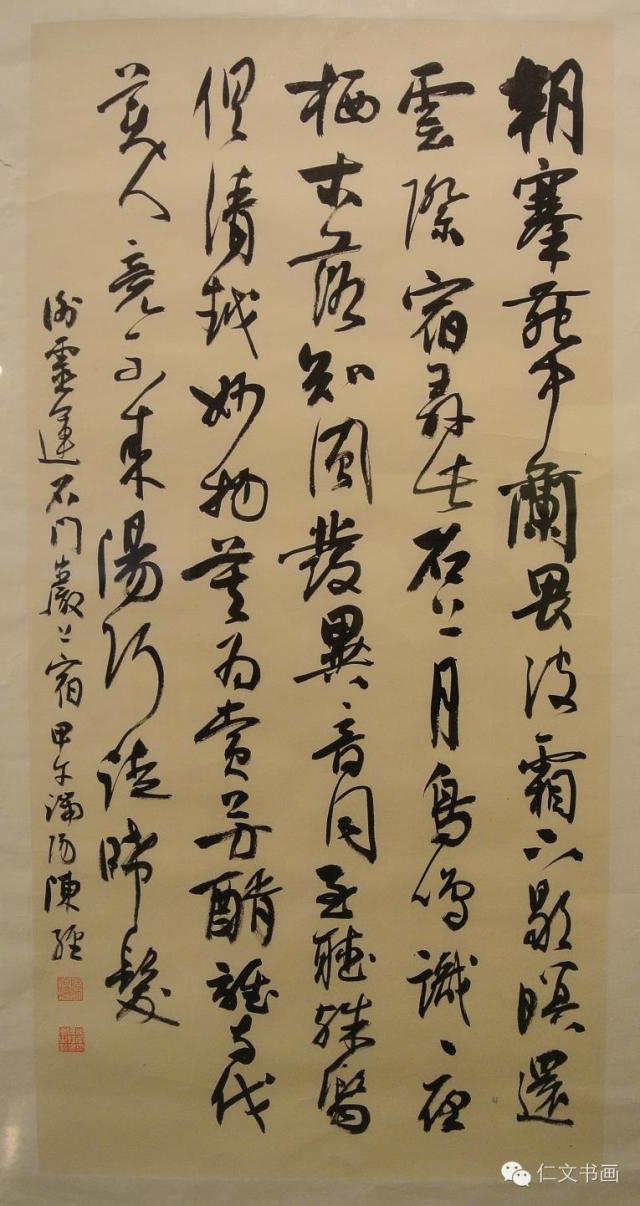 朝搴苑中蘭畏彼霜下歇暝還
雲際宿弄此石上月鳥鳴識夜
栖木落知風發異音同至聽殊響
俱清越妙物莫為賞芳醑誰與伐
美人竟不來陽阿徒晞髮
謝靈運石門巖上宿甲午端陽陳經
仁文书画